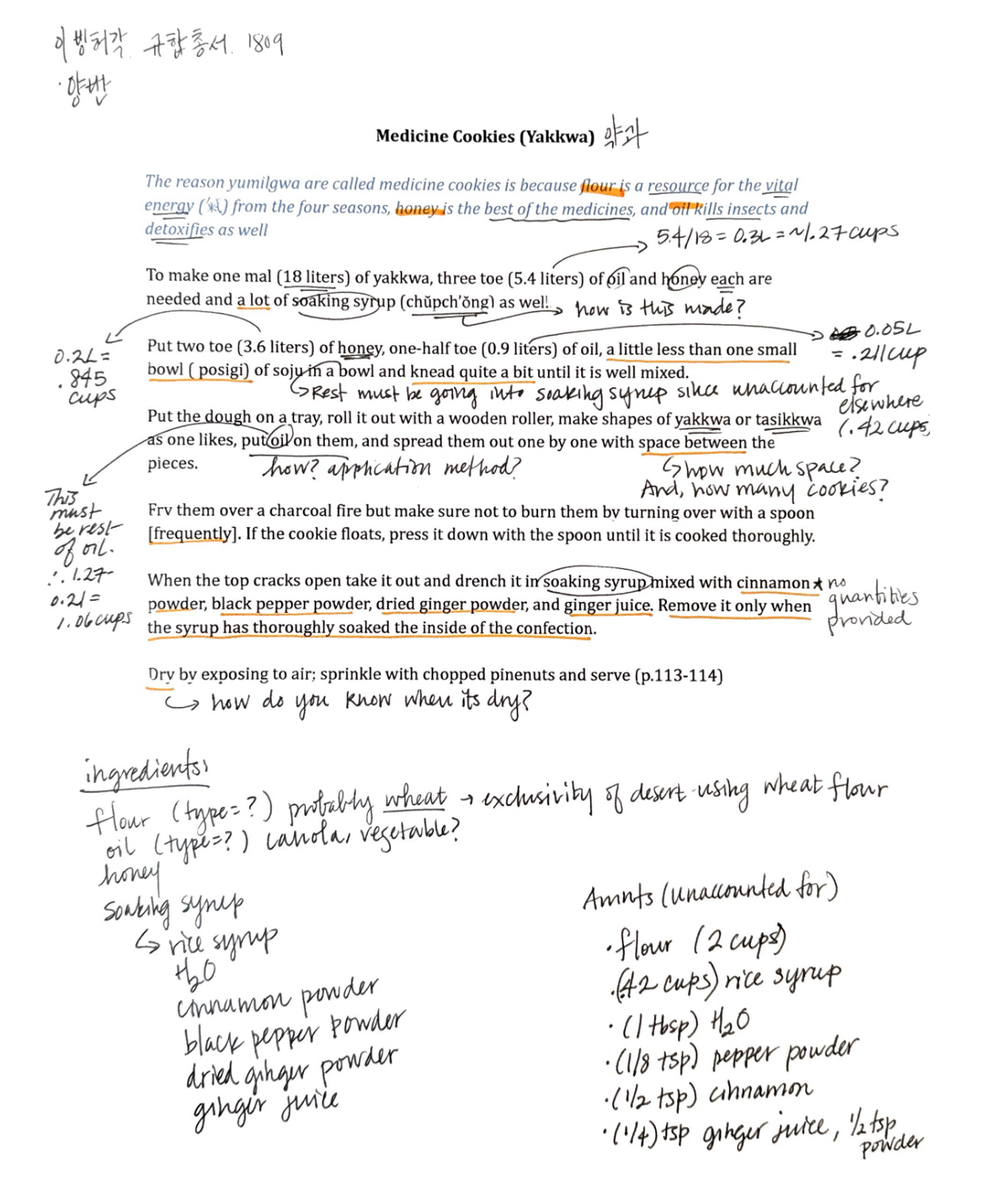 이빙허각. 규합총서. 1809
· 양반
Medicine Cookies (Yakkwa) 약과
The reason yumilgwa are called medicine cookies is because flour is a resource for the vital
energy (氣) from the four seasons, honey is the best of the medicines, and oil kills insects and
detoxifies as well
5.4/18 = 0.3L = ~1.27 cups
To make one mal (18 liters) of yakkwa, three toe (5.4 liters) of oil and honey each are
needed and a lot of soaking syrup (chŭpch'ŏng) as well.
how is this made?
0.05L
= .211 cup
0.2L =
.845
cups
Put two toe (3.6 liters) of honey, one-half toe (0.9 liters) of oil, a little less than one small
bowl ( posigi) of soju in a bowl and knead quite a bit until it is well mixed.
Rest must be going into soaking syrup since unaccounted for
elsewhere
(.42 cups)
Put the dough on a tray, roll it out with a wooden roller, make shapes of yakkwa or tasikkwa
as one likes, put oil on them, and spread them out one by one with space between the
pieces.
how? application method?
how much space?
And, how many cookies?
This
must
be rest
of oil.
∴ 1.27-
0.21=
1.06 cups
Fry them over a charcoal fire but make sure not to burn them by turning over with a spoon
[frequently]. If the cookie floats, press it down with the spoon until it is cooked thoroughly.
When the top cracks open take it out and drench it in soaking syrup mixed with cinnamon
powder, black pepper powder, dried ginger powder, and ginger juice. Remove it only when
the syrup has thoroughly soaked the inside of the confection.
★ no
quantities
provided
Dry by exposing to air; sprinkle with chopped pinenuts and serve (p.113-114)
how do you know when its dry?
ingredients:
flour (type=?) probably wheat → exclusivity of desert using wheat flour
oil (type=?) canola, vegetable?
honey
soaking syrup
↳ rice syrup
H2O
cinnamon powder
black pepper powder
dried ginger powder
ginger juice
Amnts (unaccounted for)
· flour (2 cups)
· (.42 cups) rice syrup
· (1 tbsp) H2O
· (1/8 tsp) pepper powder
· (1/2 tsp) cinnamon
· (1/4) tsp ginger juice, 1/2 tsp
powder